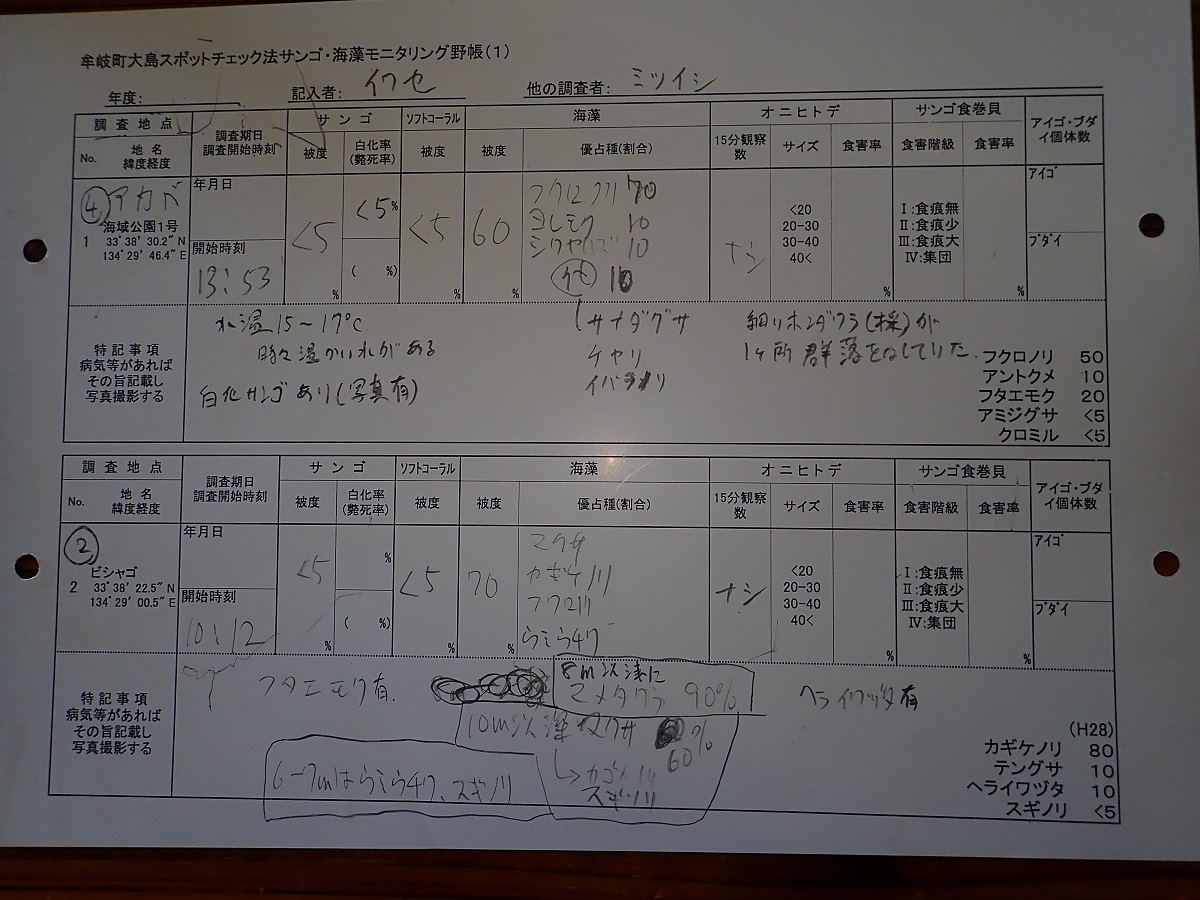 牟岐町大島スポットチェック法サンゴ・海藻モニタリング野帳(1)
年度: 記入者: イワセ 他の調査者: ミツイシ
調査地点 調査期日 調査開始時刻 サンゴ ソフトコーラル 海藻 オニヒトデ サンゴ食巻貝 アイゴ・ブダイ個体数
No. 地名 緯度経度 被度 白化率(斃死率) 被度 被度 優占種(割合) 15分観察数 サイズ 食害率 食害階級 食害率
④ アカバ
海域公園1号
1 33ﾟ 38' 30.2" N
134ﾟ 29' 46.4" E
年月日
開始時刻
13:53
<5 %
<5%
( %)
<5 %
60 %
フクロノリ 70
ヨレモク 10
10
他 10
ナシ
<20
20-30
30-40
40<
%
Ⅰ:食痕無
Ⅱ:食痕少
Ⅲ:食痕大
Ⅳ:集団
%
ｱｲｺﾞ
ﾌﾞﾀﾞｲ
特記事項
病気等があれば
その旨記載し
写真撮影する
水温15～17℃
時々温かい水がある
白化サンゴあり(写真有)
サナダグサ
ケヤリ
イバラノリ
細いホンダワラ(採)が
1ヶ所群落をなしていた.
フクロノリ 50
アントクメ 10
フタエモク 20
アミジグサ <5
クロミル <5
調査地点 調査期日 調査開始時刻 サンゴ ソフトコーラル 海藻 オニヒトデ サンゴ食巻貝 アイゴ・ブダイ個体数
No. 地名 緯度経度 被度 白化率(斃死率) 被度 被度 優占種(割合) 15分観察数 サイズ 食害率 食害階級 食害率
②
ビシャゴ
2 33ﾟ 38' 22.5" N
134ﾟ 29' 00.5" E
年月日
開始時刻
10:12
<5 %
%
( %)
<5 %
70 %
マクサ
カギケノリ
フクロノリ
%
ナシ
<20
20-30
30-40
40<
%
Ⅰ:食痕無
Ⅱ:食痕少
Ⅲ:食痕大
Ⅳ:集団
%
ｱｲｺﾞ
ﾌﾞﾀﾞｲ
特記事項
病気等があれば
その旨記載し
写真撮影する
フタエモク有.
8m以浅に
マメタワラ 90%
ヘライワヅタ有
10m以深 マクサ %
60
スギノリ
6-7mは スギノリ
(H28)
カギケノリ 80
テングサ 10
ヘライワヅタ 10
スギノリ <5